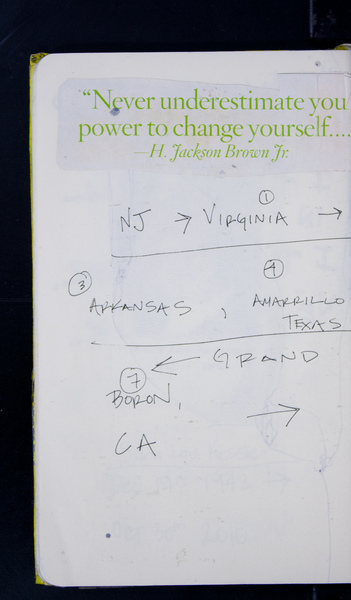 “Never underestimate you
power to change yourself....
—H. Jackson Brown Jr.
①
NJ → VIRGINIA →
③ ④
ARKANSAS, AMARRILLO
TEXAS
← GRAND
⑦
BORON,
CA →